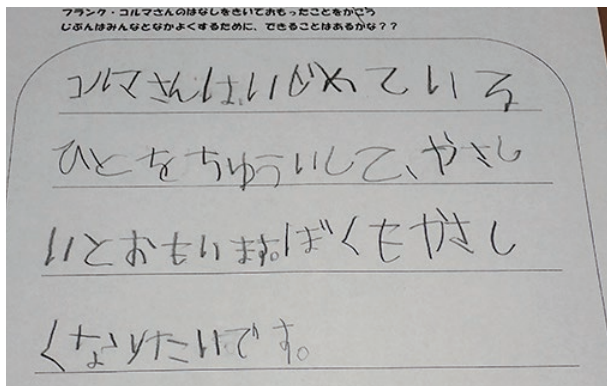 フランク・コルマさんのはなしをきいておもったことをかこう
じぶんはみんなとなかよくするために、できることはあるかな？？
コルマさんは、いじめている
ひとをちゅういして、やさし
いとおもいます。ぼくもやさし
くなりたいです。